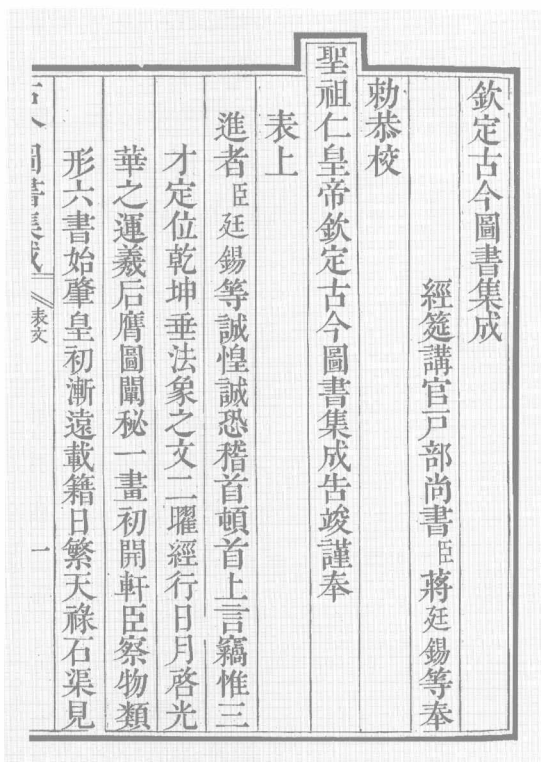 欽定古今圖書集成
經筵講官戶部尚書臣蔣廷錫等奉
勅恭校
聖祖仁皇帝欽定古今圖書集成告竣謹奉
表上
進者臣廷錫等誠惶誠恐稽首頓首上言竊惟三
才定位乾坤垂法象之文二曜經行日月啓光
華之運羲后膺圖闡秘一畫初開軒臣察物類
形六書始肇皇初漸遠載籍日繁天祿石渠見
古今圖書集成 表文 一